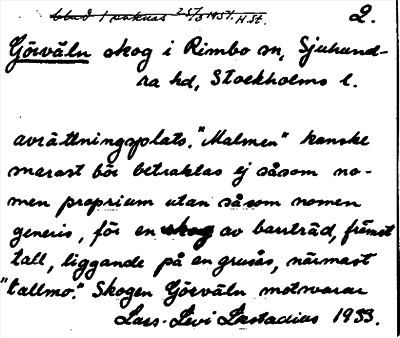 blad 1 saknas 25/5 1951. H.St. 2.
Görväln skog i Rimbo sn, Sjuhund-
ra hd, Stockholms l.
avrättningsplats. "Malmen" kanske
marast bör betraktas ej såsom no-
men proprium utan såsom nomen
generis, för en skog av barrträd, främst
tall, liggande på en grusås, närmast
"tallmo." Skogen Görväln motsvarar
Lars-Levi Læstadius 1933.